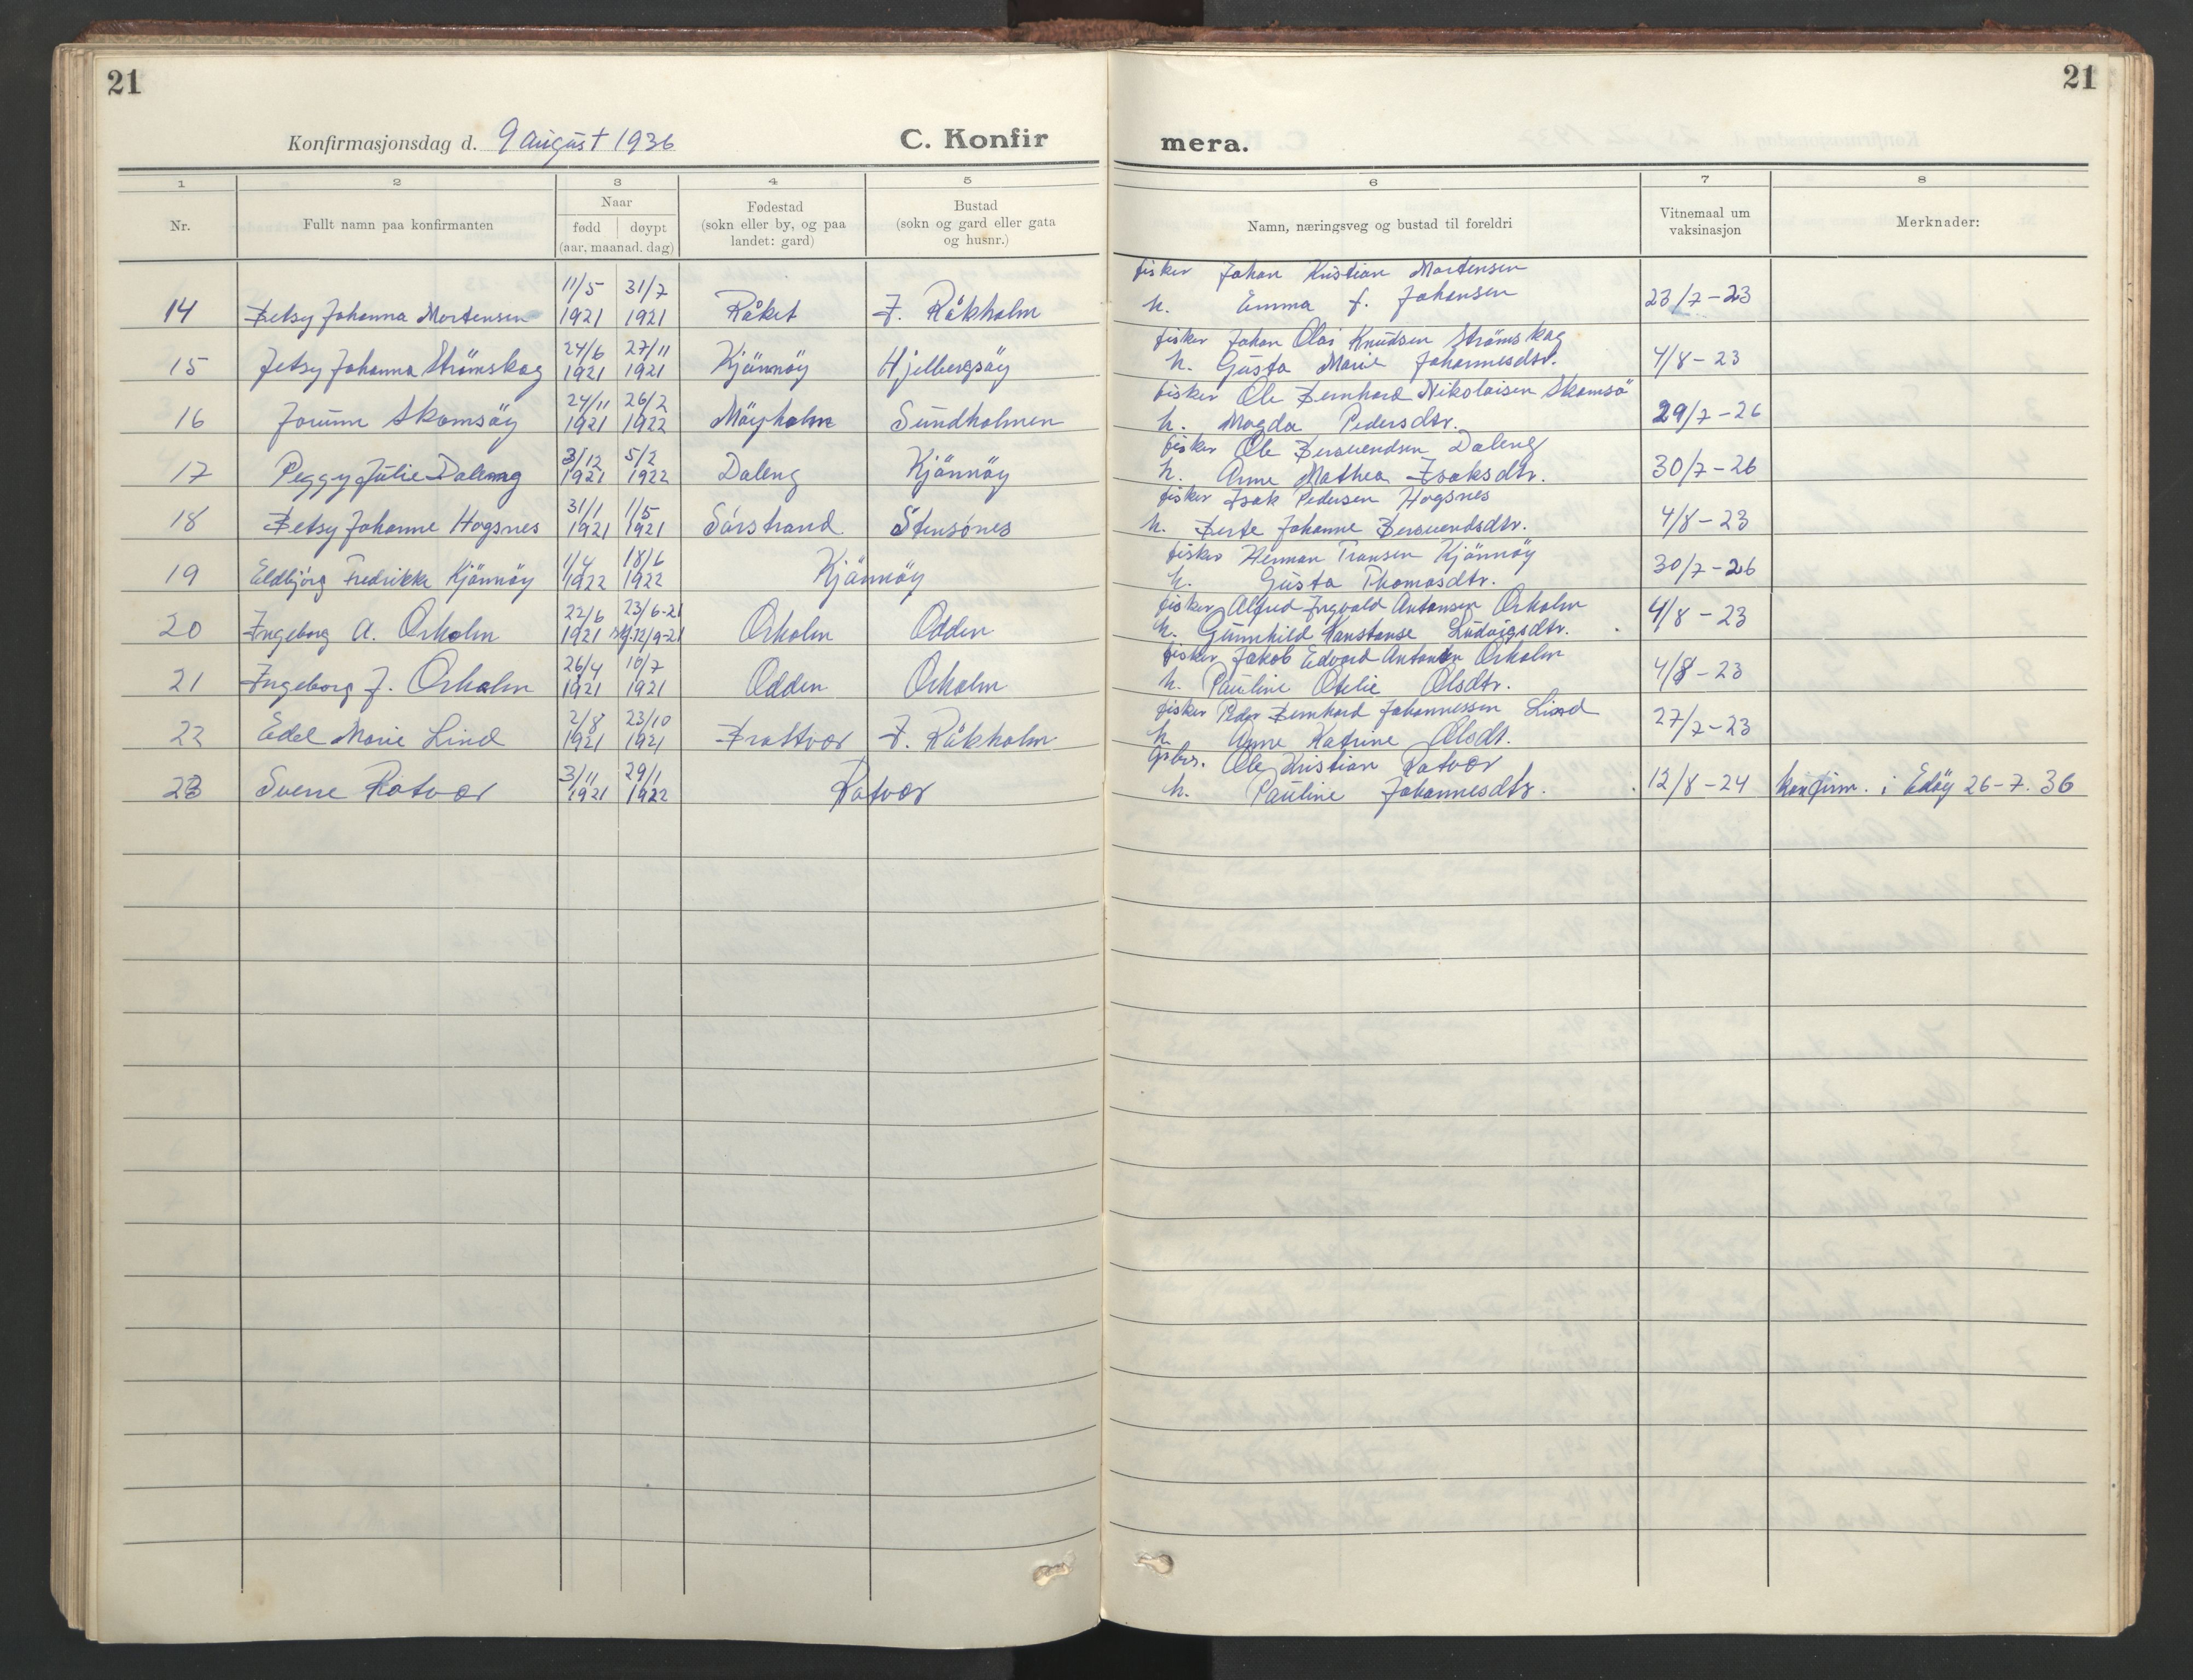 21
21
Konfirmasjonsdag d. 9 august 1936
C. Konfir
mera.
1 2 3 4 5 6 7 8
Nr.
Fullt namn paa konfirmanten
Naar
fødd døypt
(aar, maanad, dag)
Fødestad
(sokn eller by, og paa
landet: gard)
Bustad
(sokn og gard eller gata
og husnr.)
Namn, næringsveg og bustad til foreldri
Vitnemaal um
vaksinasjon
Merknader:
11/5 31/7 fisker Johan Kristian Mortensen
14 Betsy Johanna Mortensen 1921 1921 Råket I. Råkholm h. Emma f. Johansen 23/7-23
24/6 27/11 fisker Johan Olai Knudsen Strömskag
15 Jetsy Johanna Strömskag 1921 1921 Kjönnöy Hjelbergsöy h. Gusta Marie Johannesdtr. 4/8-23
24/11 26/2 fisker Ole Bernhard Nikolaisen Skomsö
16 Jorunn Skomsöy 1921 1922 Möyholm Sundholmen h. Magda Pedersdtr. 29/7-26
3/12 5/2 fisker Ole Berauendsen Daleng
17 Peggy Julie Daleng 1921 1922 Daleng Kjönnöy h. Anne Mathea Isaksdtr. 30/7-26
31/1 1/5 fisker Isak Pedersen Hogsnes
18 Betsy Johanne Hogsnes 1921 1921 Sörstrand Stensönes h. Berte Johanne Berauendsdtr. 4/8-23
1/4 18/6 fisker Herman Transen Kjönnöy
19 Eldbjörg Fredrikke Kjönnöy 1922 1922 Kjönnöy h. Gusta Thomasdtr. 30/7-26
22/6 23/6-21 fisker Alfred Ingvald Antonsen Orholm
20 Ingeborg A. Orholm 1921 12/9-21 Orholm Odden h. Gunnhild Konstanse Ludvigsdtr. 4/8-23
26/4 10/7 fisker Jakob Edvard Antonsen Orholm
21 Ingeborg J. Orholm 1921 1921 Odden Orholm h. Pauline Otelie Olsdtr. 4/8-23
2/8 23/10 fisker Peder Bernhard Johannessen Lind
22 Edel Marie Lind 1921 1921 Brattvær I. Råkholm h. Anne Katrine Olsdt. 27/7-23
3/11 29/1 gsbr. Ole Kristian Rotvær
23 Sverre Rotvær 1921 1922 Rotvær h. Pauline Johannesdtr. 12/8-24 konfirm. i Edöy 26-7. 36